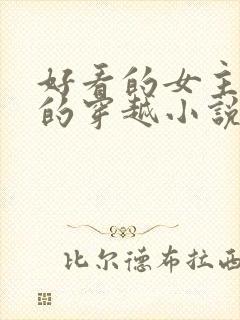 好看的女主
的穿越小说
比尔德布拉西